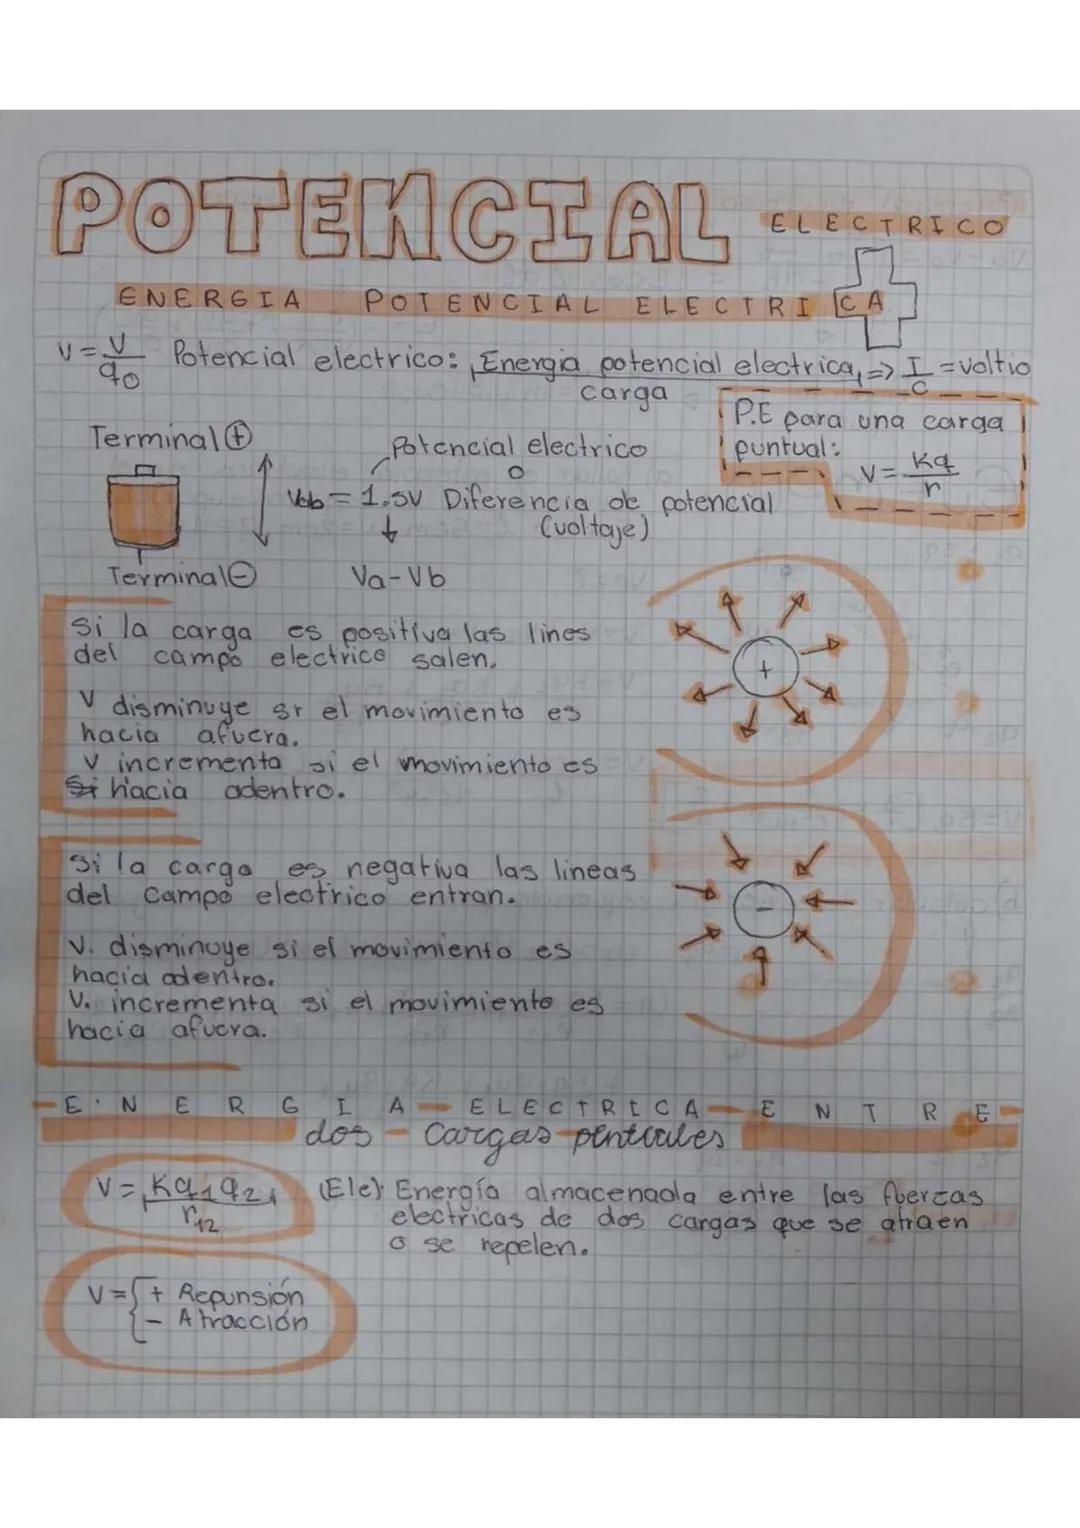 POTENCIAL ELECTRICO
ENERGIA POTENCIAL ELECTRICA
V = V/q0 Potencial electrico: Energia potencial electrica/carga => I/C = voltio
P.E para una carga
puntual:
V = Kq/r
Terminal +
Potencial electrico
o
Vab = 1.5V Diferencia de potencial
(voltaje)
Terminal -
Va-Vb
Si la carga es positiva las lines
del campo electrico salen.
V disminuye si el movimiento es
hacia afuera.
V incrementa si el movimiento es
Si hacia adentro.
+
Si la carga es negativa las lineas
del campo electrico entran.
V. disminuye si el movimiento es
hacia adentro.
V. incrementa si el movimiento es
hacia afuera.
-
ENERGIA ELECTRICA ENTRE
dos cargas puntuales
V = Kq1q2/r12 (Ele) Energía almacenada entre las fuerzas
electricas de dos cargas que se atraen
o se repelen.
V = { + Repunsión
- Atracción